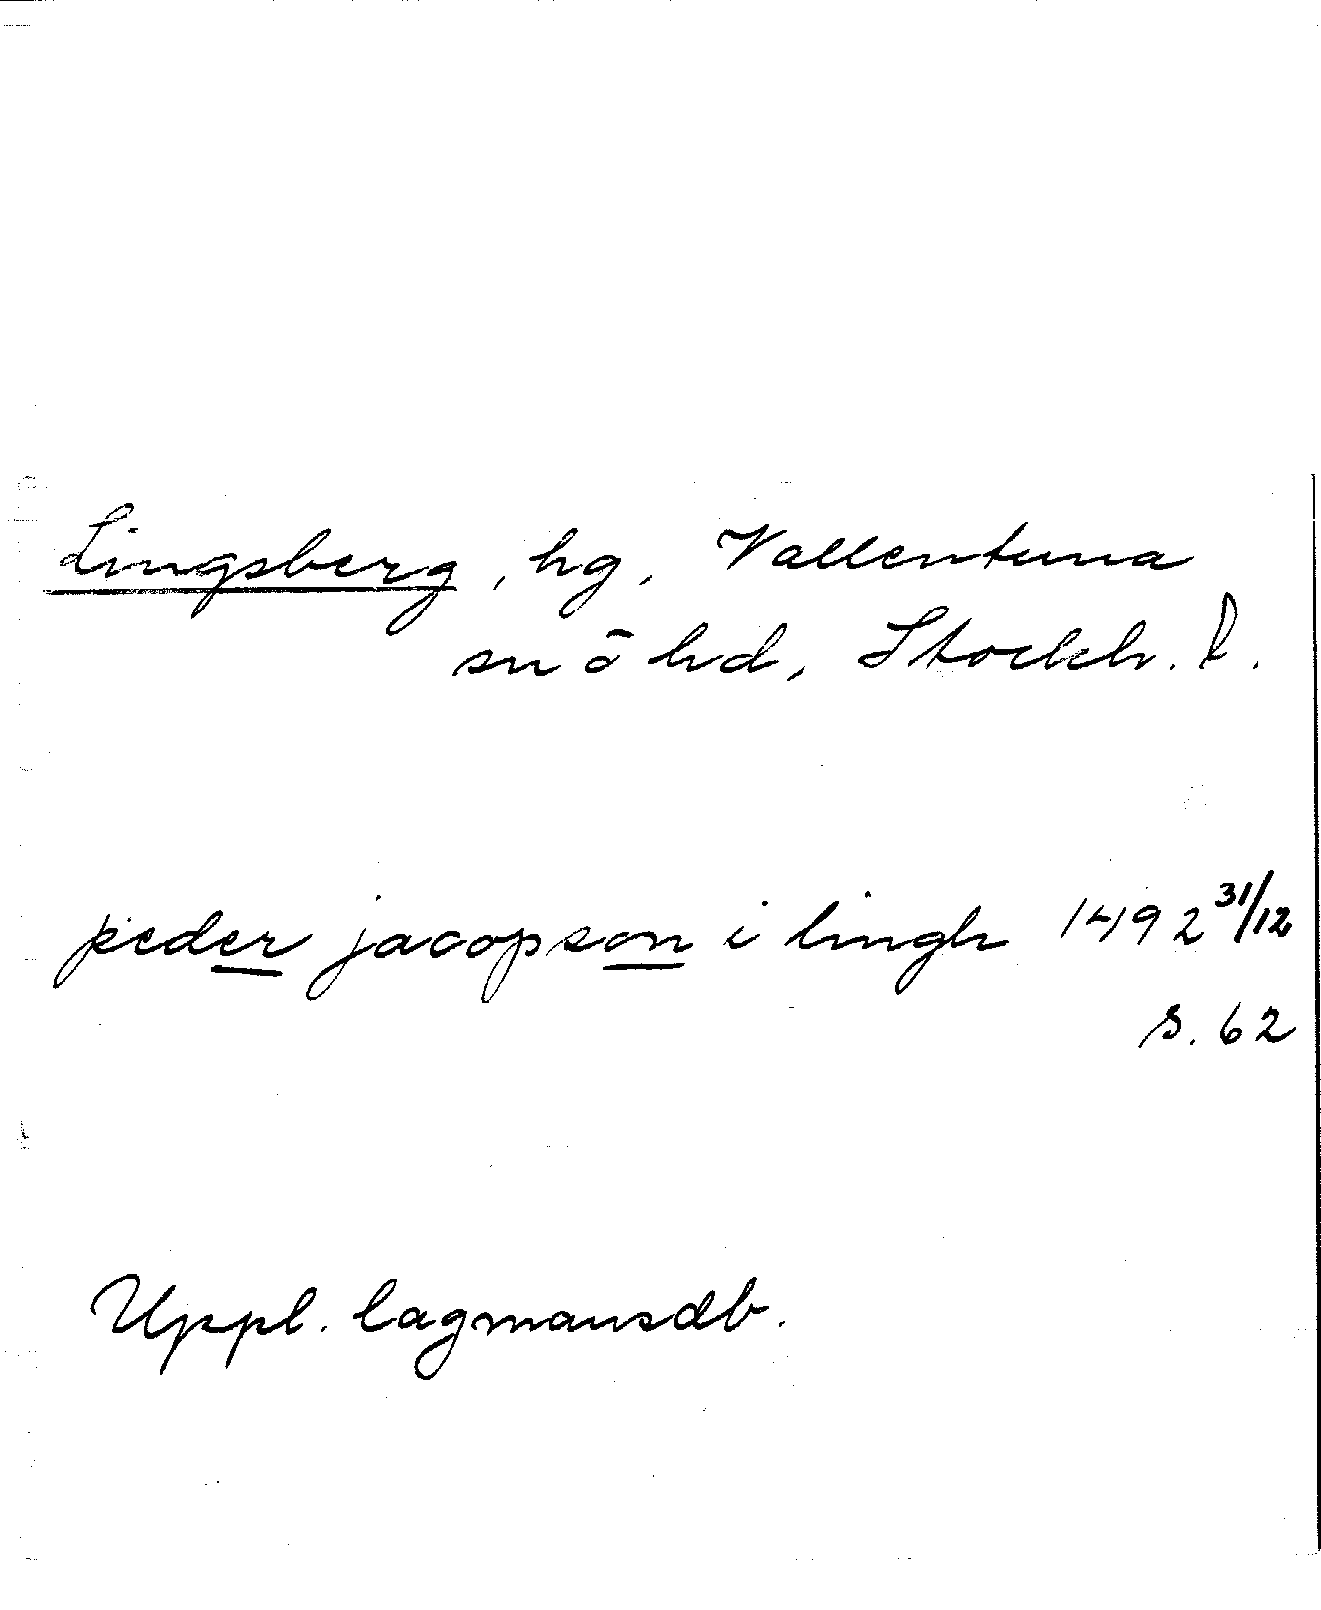 Lingsberg, hg, Vallentuna
sn o hd, Stockh. l.
peder jacopson i lingh 1492 31/12
s. 62
Uppl. lagmansdb.